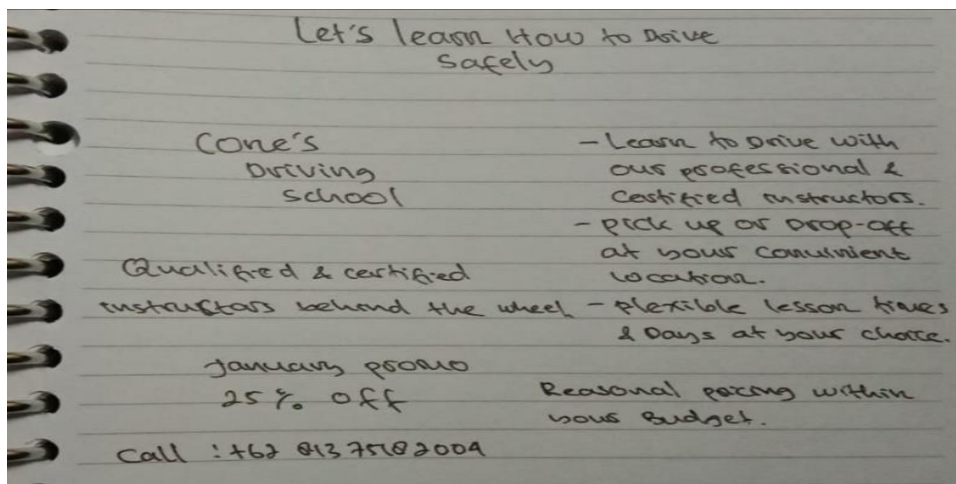 Let's learn How to Drive
Safely
Cone's
Driving
School
Qualified & certified
instructors behind the wheel
January promo
25% Off
Call : +62
- Learn to Drive with
our professional &
Certified instructors.
- pick up or Drop-off
at your convinient
location.
- flexible lesson times
& Days at your choice.
Reasonal pricing within
your Budget.